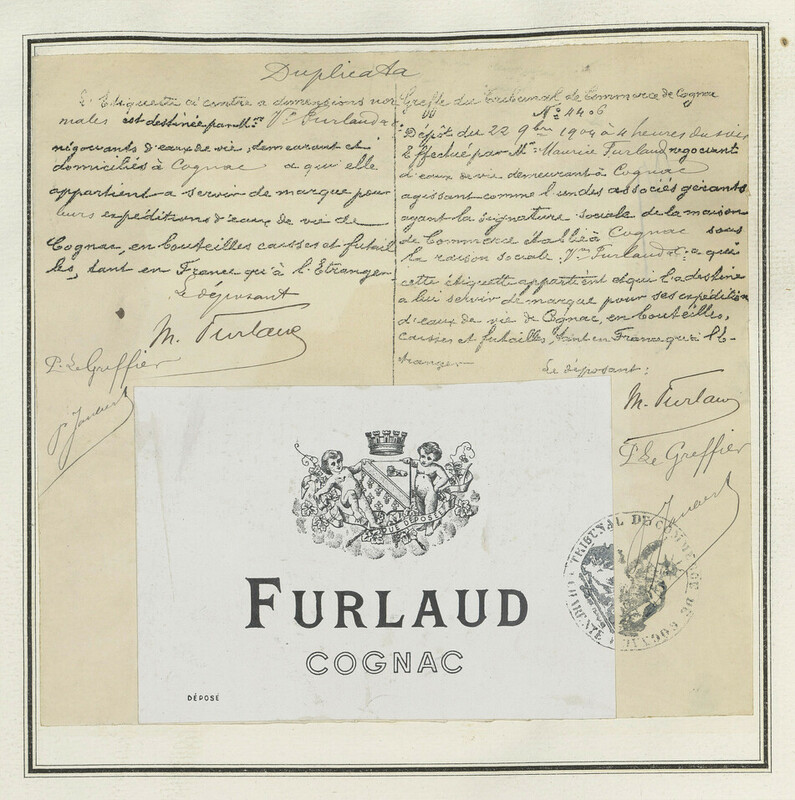 Duplicata
L'Etiquette ci contre a dimensions nor
males est destinée par Mrs Vve Furlaud &
négociants d'eaux de vie, demeurant et
domiciliés à Cognac a qui elle
appartient a servir de marque pour
leurs expéditions d'eaux de vie de
Cognac, en bouteilles caisses et futail
les, tant en France qu'à l'Etranger
Le déposant
M. Furlaud
P. Le Greffier
Greffe du Tribunal de Commerce de Cognac
No 4406
Dépôt du 22 9bre 1904 à 4 heures du soir
Effectué par Mr Maurice Furlaud negociant
d'eaux de vie demeurant à Cognac
agissant comme l'un des associés gérants
ayant la signature sociale de la maison
de Commerce établie à Cognac sous
la raison sociale Furlaud a qui
cette étiquette appartient et qui l'a destine
a lui servir de marque pour ses expédition
d'eaux de vie de Cognac, en bouteilles,
caisses et futailles, tant en France qu'à l'é-
tranger
Le déposant:
M. Furlaud
P. Le Greffier
DÉPOSÉ
FURLAUD
COGNAC
DÉPOSÉ
TRIBUNAL DE COMMERCE DE COGNAC
CHARENTE